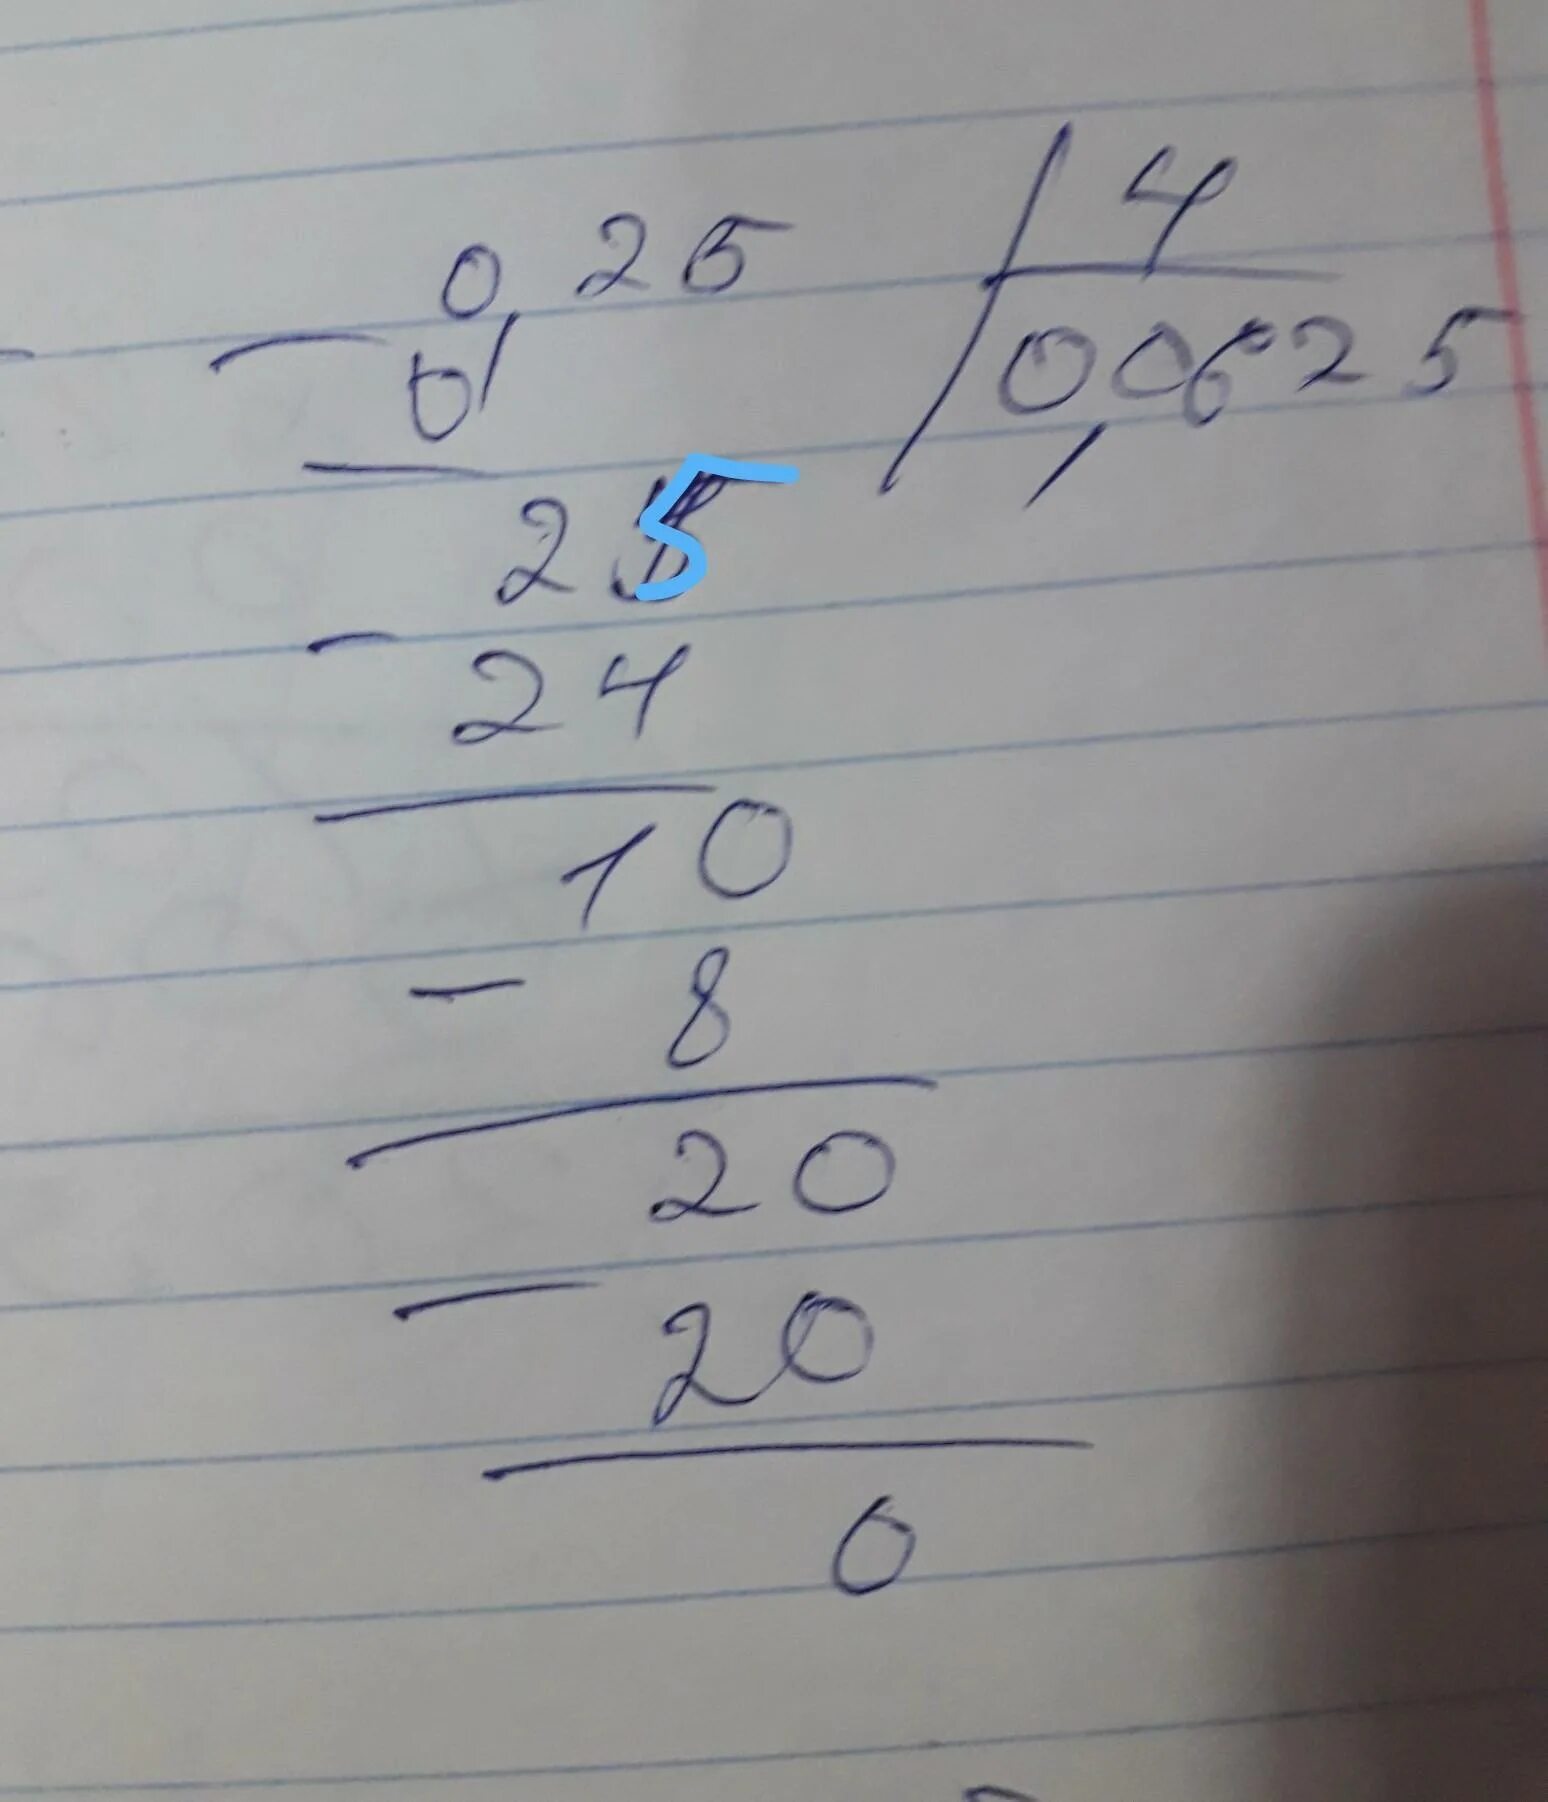 0,25 | 4
- 0 | 0,0625
25
- 24
10
- 8
20
- 20
0